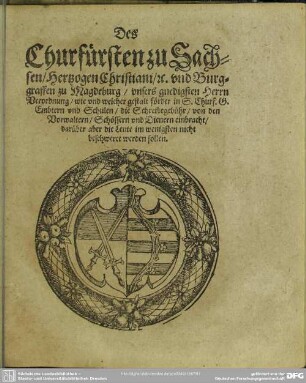 Des
Churfürsten zu Sach-
sen/ Hertzogen Christian/ ꝛc. vnd Burg-
graffen zu Magdeburg / vnsers gnedigsten Herrn
Verordnung/ wie vnd welcher gestalt förder in S. Churf. G.
Embtern vnd Schulen/ die Schreibegebühr/ von den
Vorwaltern/ Schössern vnd Dienern einbracht/
darüber aber die Leute im wenigsten nicht
beschweret werden sollen.
Sächsische Landesbibliothek -
Staats- und Universitätsbibliothek Dresden
gefördert von der
Deutschen Forschungsgemeinschaft
DFG